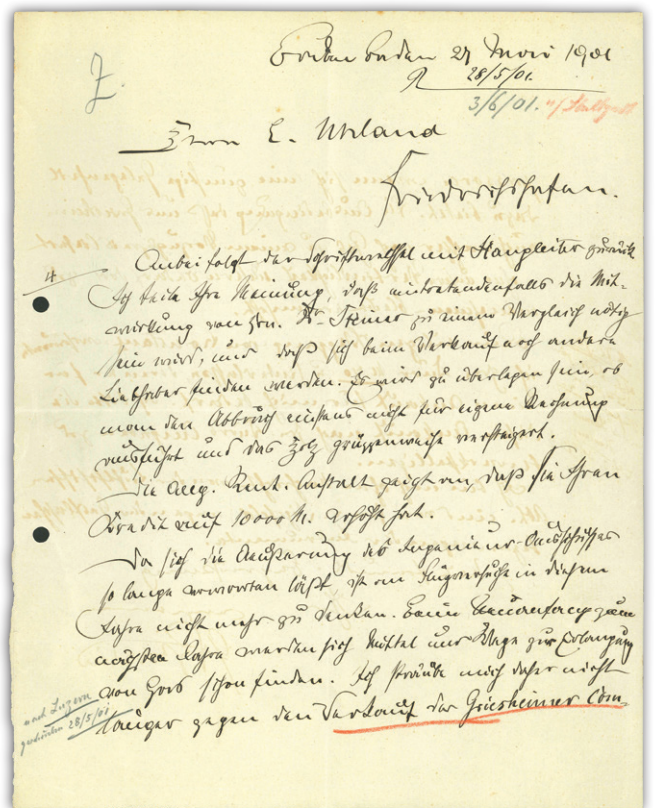 Z.
Baden Baden 27 Mai 1901
28/5/01.
3/6/01.
Herrn E. Uhland
Friedrichshafen.
Anbei folgt der Schriftwechsel mit Hangleiter zurück
4
Ich teile Ihre Meinung, daß eintretendenfalls die Mit-
wirkung von Hrn. Dr. Steiner zu einem Vergleich nötig
sein wird, und daß sich beim Verkauf noch andere
Liebhaber finden werden. Es wird zu überlegen sein, ob
man den Abbruch nicht für eigene Rechnung
ausführt und das Holz gruppenweise versteigert.
Die Allg. Rent. Anstalt zeigt an, daß sie Ihren
Kredit auf 10000 M. erhöht hat.
Da sich die Aeußerung des Ingenieur-Ausschusses
so lange erwarten läßt, ist an Flugversuche in diesem
Jahre nicht mehr zu denken. Beim Neuanfang zum
nächsten Jahre werden sich Mittel und Wege zur Erlangung
von Gas schon finden. Ich sträube mich daher nicht
länger gegen den Verkauf der Griesheimer Com-
nach Luzern
geschrieben 28/5/01